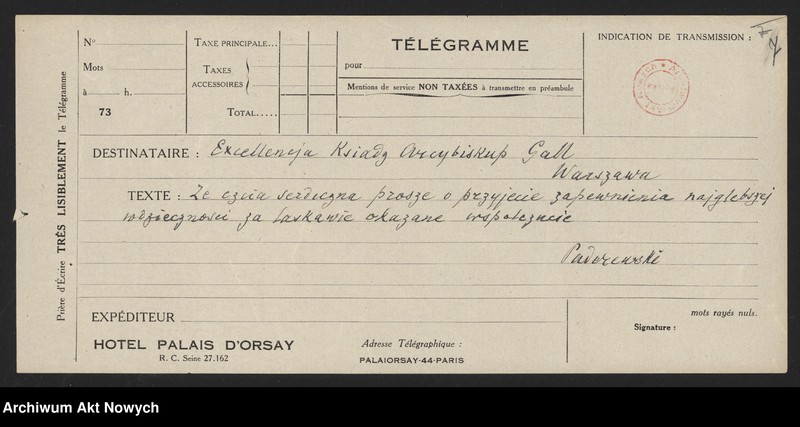 N°
Mots
à h.
73
TAXE PRINCIPALE...
TAXES
ACCESSOIRES
TOTAL.....
TÉLÉGRAMME
pour
Mentions de service NON TAXÉES à transmettre en préambule
INDICATION DE TRANSMISSION :
7
Prière d'Écrire TRÈS LISIBLEMENT le Télégramme
DESTINATAIRE : Excellencja Ksiadz Arcybiskup Gall
Warszawa
TEXTE : Ze czcia serdeczna prosze o przyjecie zapewnienia najglebszej
wdziecznosci za laskawie okazane wspolczucie
Paderewski
EXPÉDITEUR
mots rayés nuls.
Signature :
HOTEL PALAIS D'ORSAY
R. C. Seine 27.162
Adresse Télégraphique :
PALAIORSAY-44-PARIS
Archiwum Akt Nowych